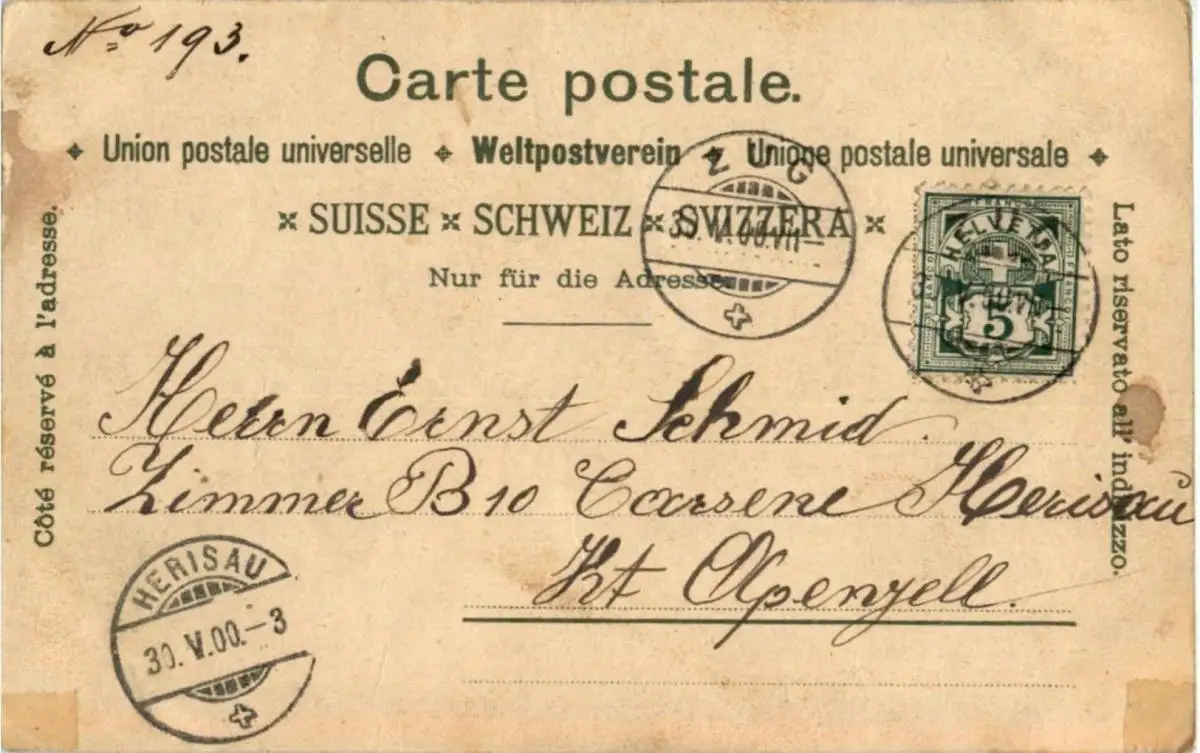 No 193.
Carte postale.
Union postale universelle Weltpostverein Unione postale universale
SUISSE SCHWEIZ SVIZZERA
Nur für die Adresse.
Côté réservé à l'adresse.
Lato riservato all' indirizzo.
ZUG
30. V. 00. VII-
FRANCO
HELVETIA
FRANCO
FRANCO
5
Herrn Ernst Schmid.
Zimmer B 10 Carsene Herisau
Kt Apenzell.
HERISAU
30. V. 00. - 3